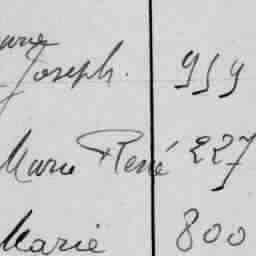 Joseph. 959
Marie René 227
Marie 800